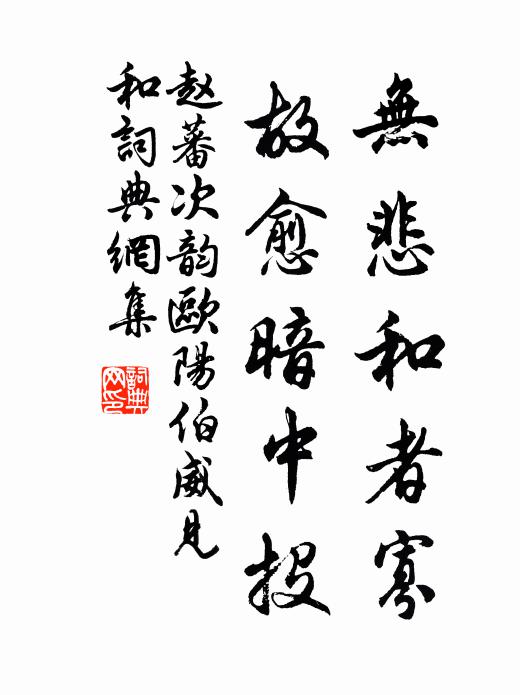 無悲和者寡
故愈暗中投
赵蕃次韵歐陽伯威見
和詞典網集
詞典
网印